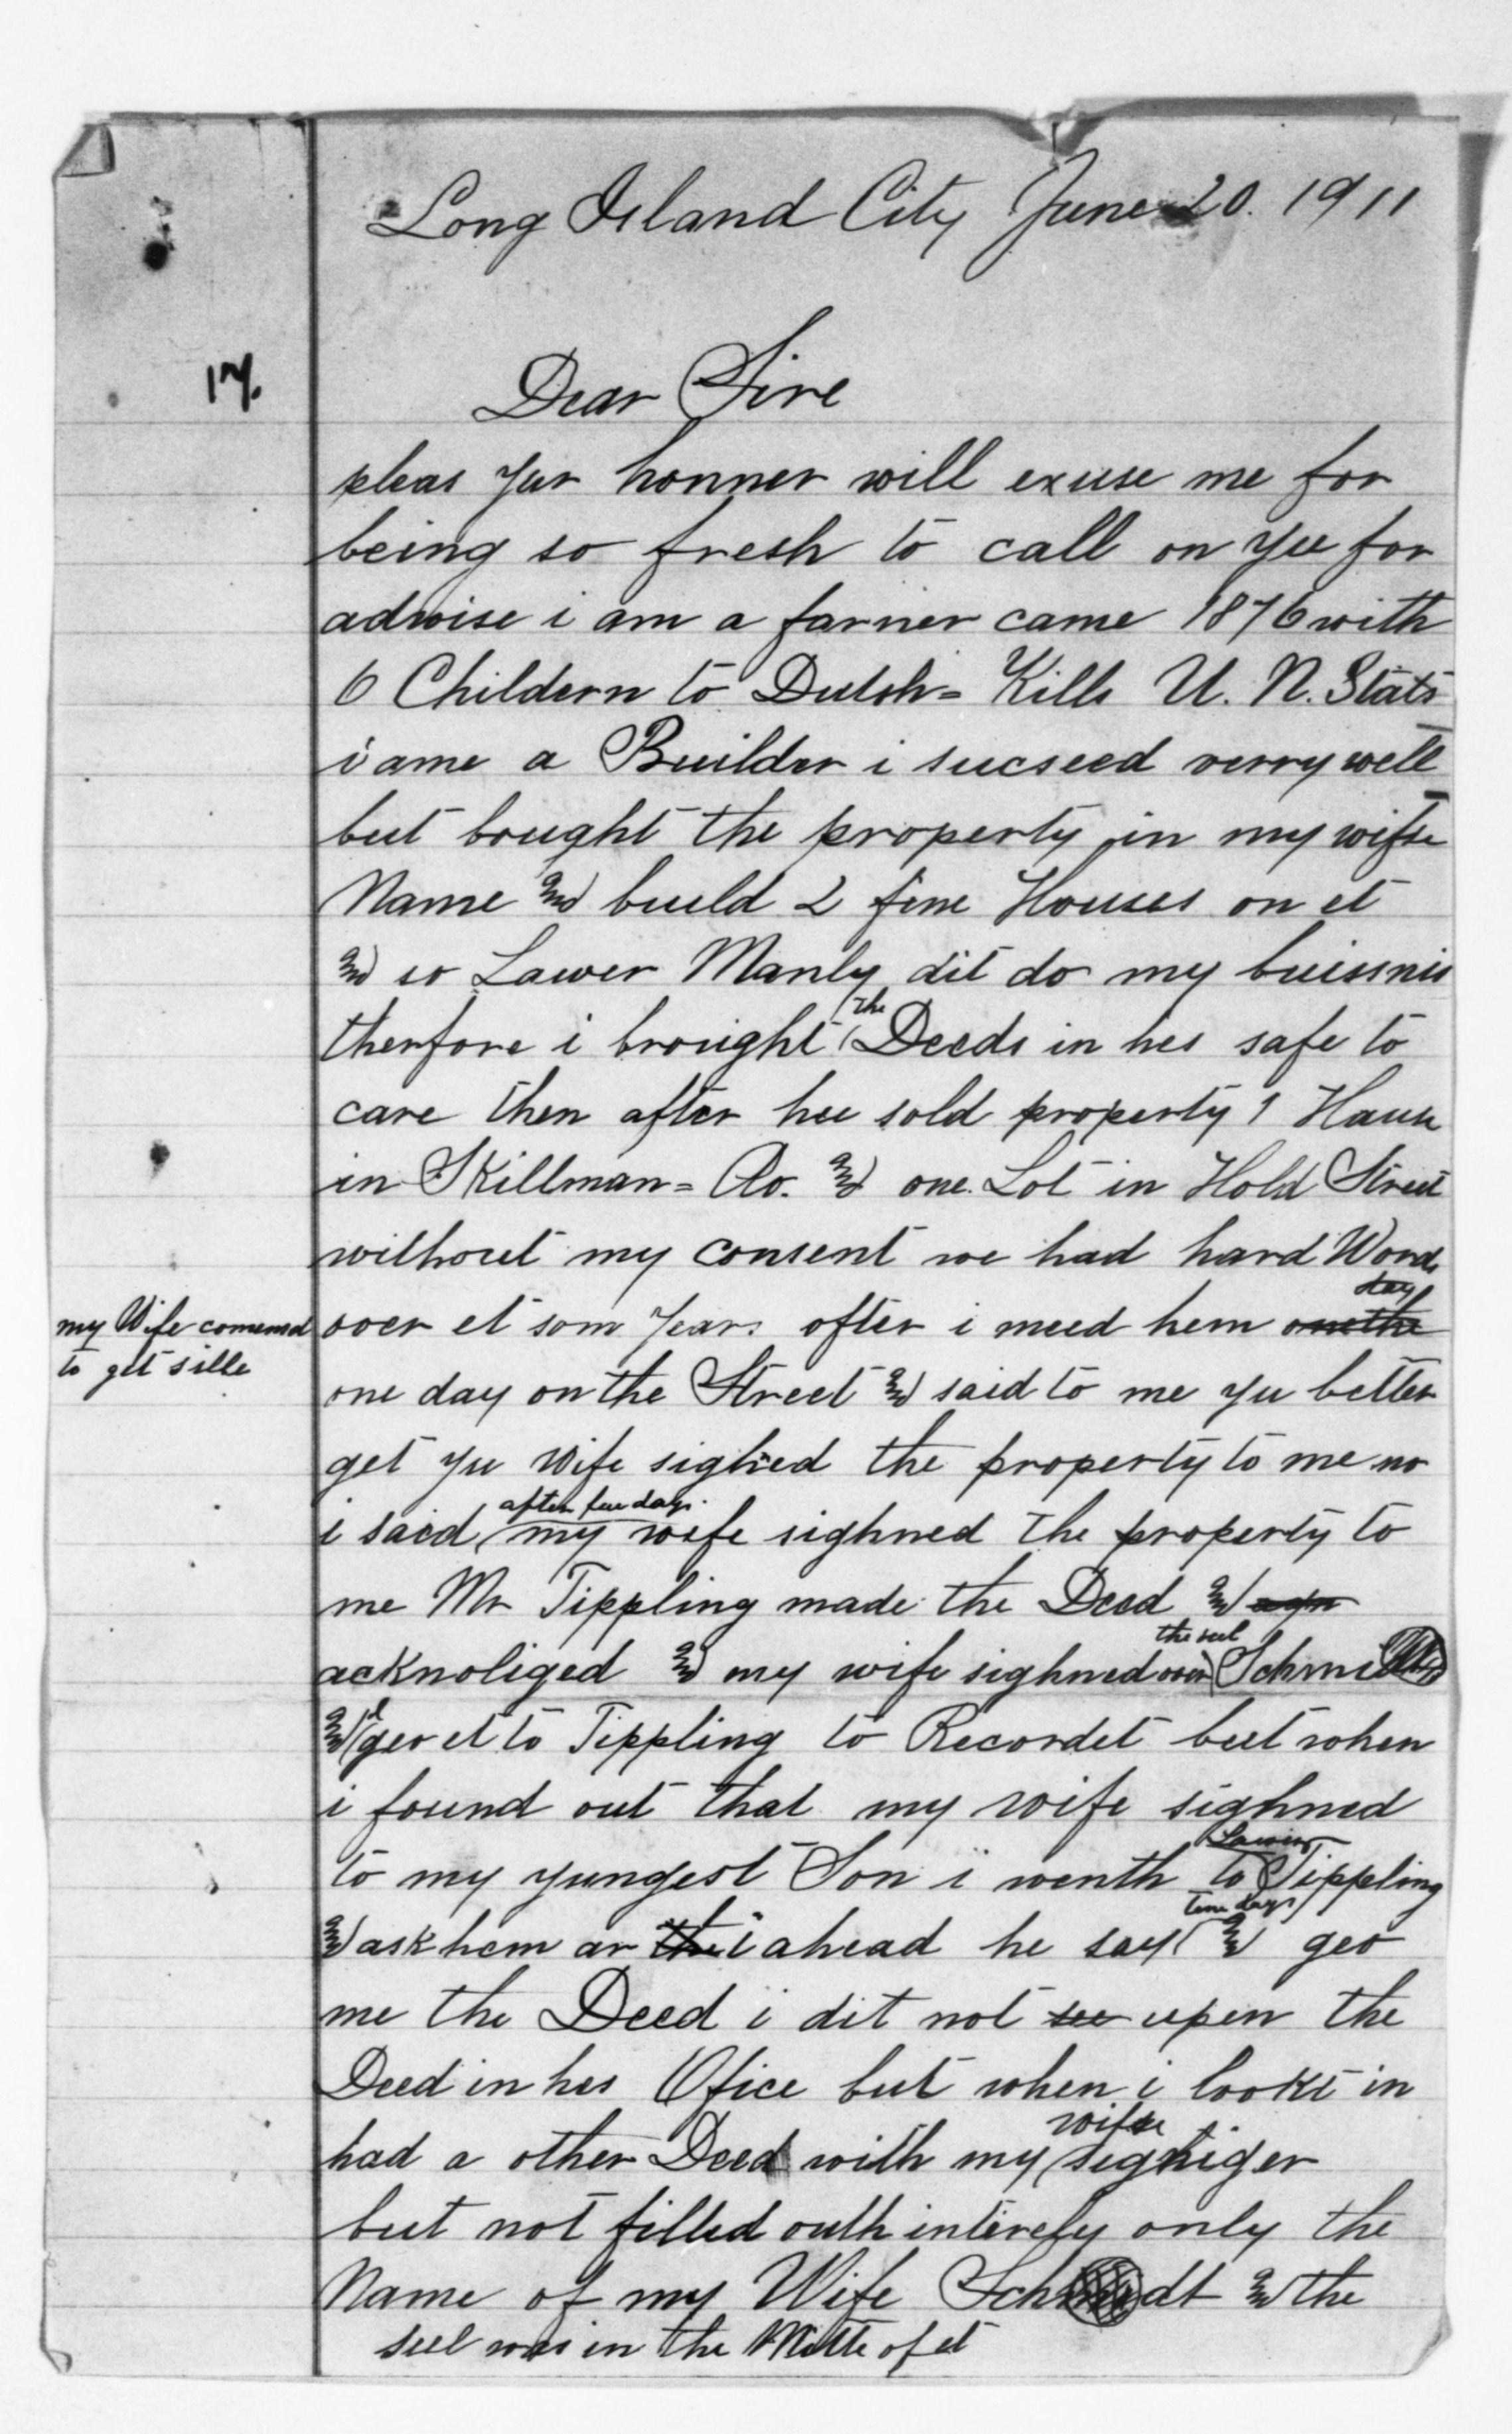 Long Island City June 20. 1911
17.
Dear Sire
pleas yur honner will exuse me for
being so fresh to call on yu for
adwise i am a farner came 1876 with
6 Childern to Dutsh= Kills U. N. Stats
i ame a Builder i sucseed verry well
but bought the property in my wifse
Name and build 2 fine Houses on et
and so Lawer Manly dit do my buissnis
therfore i brought the Deeds in hes safe to
care then after hee sold property 1 Hause
in Skillman= Av. and one Lot in Hold Street
without my consent we had hard Words
my Wife comensed
to get sille
over et som years after i meed hem
one day on the Street and said to me yu better
get yu wife sighned the property to me no
i said after few days. my wife sighned the property to
me Mr Tippling made the Deed and
acknoliged and my wife sighned over the seel Schmidt
and i gev et to Tippling to Recordet but when
i found out that my wife sighned
to my yungest Son i wenth to Lawer Tippling
and ask hem ar i ahead he say tene days and gev
me the Deed i dit not see upen the
Deed in hes Ofice but when i lookt in
had a other Deed with my wifse sighiger
but not filled outh intirely only the
Name of my Wife Schmidt and the
seel was in the Mitte of et